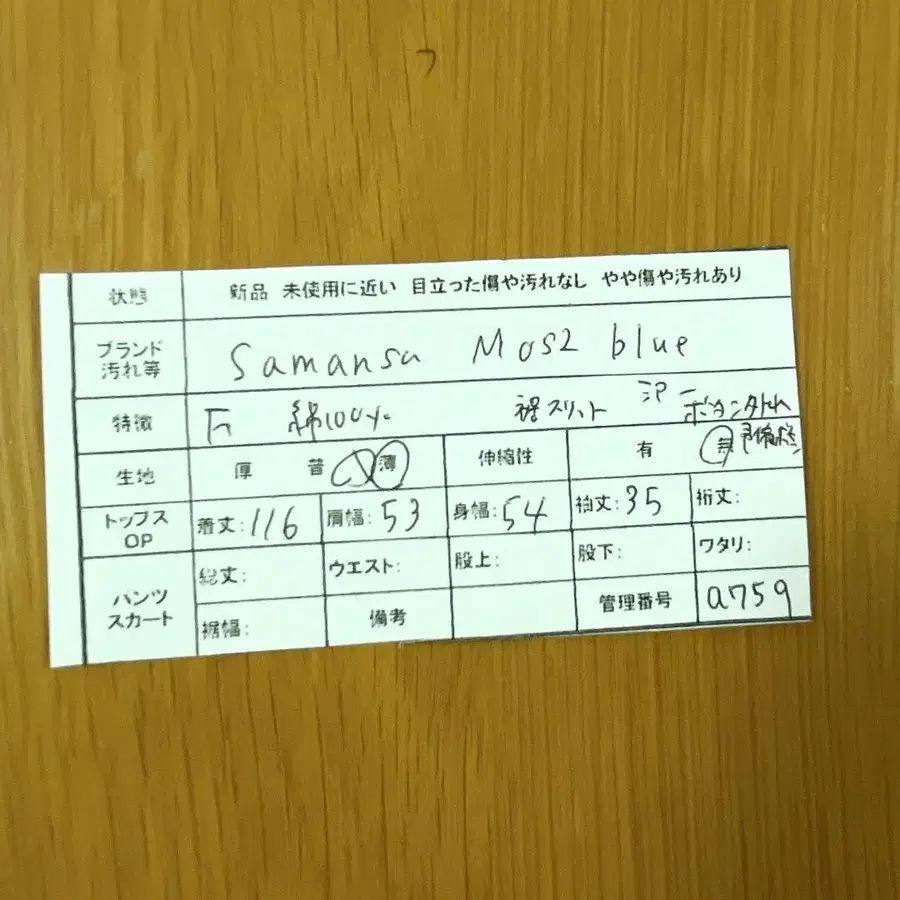 状態 新品 未使用に近い 目立った傷や汚れなし やや傷や汚れあり
ブランド 汚れ等 Samansa Mos2 blue
特徴 F 綿100% 裾スリット
生地 厚 普 薄 伸縮性 有 無
トップス OP 着丈:116 肩幅:53 身幅:54 袖丈:35 裄丈:
パンツ スカート 総丈: ウエスト: 股上: 股下: ワタリ:
裾幅: 備考 管理番号 a759